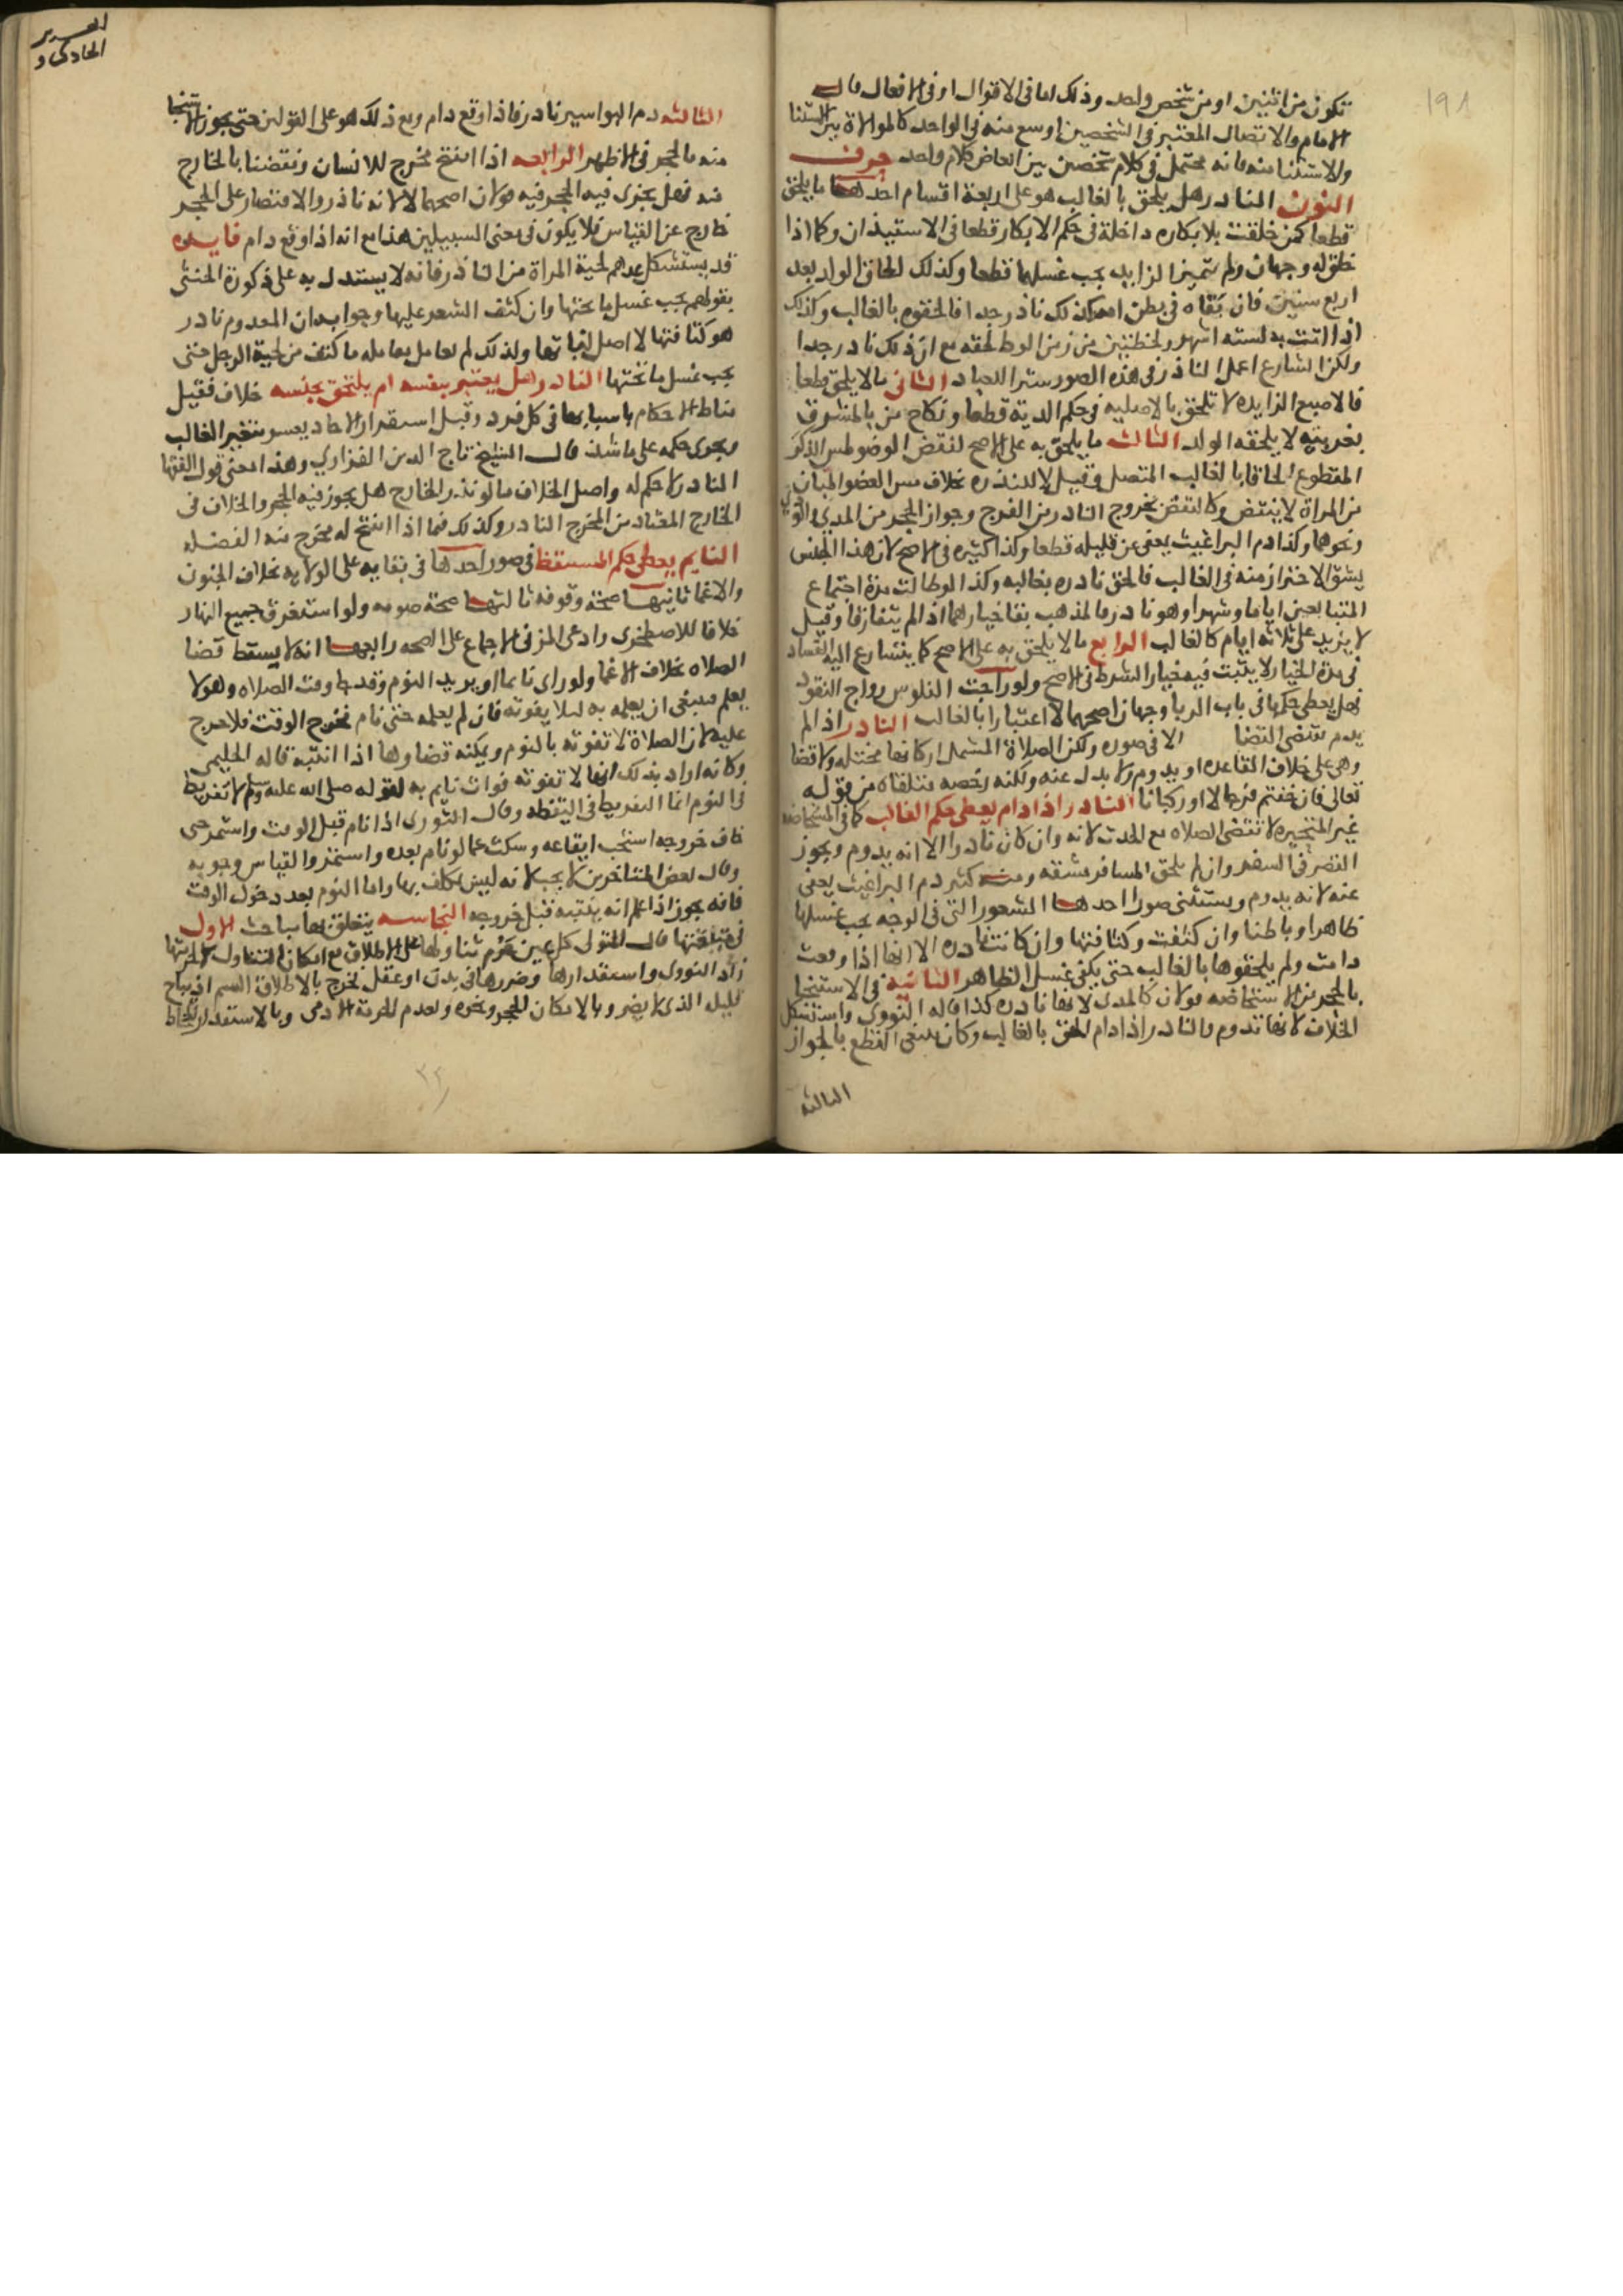 تكون من اثنين او من شخص واحد وذلك اما في الاقوال او في الافعال قال
الامام والاتصال المعتبر في الشخصين اوسع منه في الواحد كالموالاة بين الاستثنا
والاستثنا منه فانه محتمل في كلام شخصين بين ابعاض كلام واحد حرف
النون النادر هل يلحق بالغالب هو على اربعة اقسام احدها ما يلحق
قطعا كمن خلقت بلا بكاره داخلة في حكم الابكار قطعا في الاستيذان وكما اذا
خلق له وجهان ولم يتميز الزايد يجب غسلهما قطعا وكذلك الحاق الولد بعد
اربع سنين فان بقاه في بطن امه كذلك نادر جدا فالحقوه بالغالب وكذلك
اذا اتت به لسته اشهر ولحظتين من زمن الوط لحقه مع ان ذلك نادر جدا
ولكن الشارع اعمل النادر في هذه الصور سترا للعباد الثاني ما لا يلحق قطعا
فالاصبع الزايده لا تلحق بالاصليه في حكم الدية قطعا ونكاح من بالمشرق
بمغربيه لا يلحقه الولد الثالث ما يلحق به على الاصح لنقض الوضو لمس الذكر
المقطوع الحاقا بالغالب المتصل وقيل لا للندره بخلاف مس العضو المبان
من المراة لا ينتقض وكالنقض بخروج النادر من الفرج وجواز الحجر من المذي والودي
ونحوهما وكذا دم البراغيث يعفى عن قليله قطعا وكذا كثيره في الاصح لان هذا الجنس
يشق الاحتراز منه في الغالب فالحق نادره بغالبه وكذا لو طالت مدة اجتماع
المتبايعين اياما وشهرا وهو نادر فالمذهب بقا خيارهما اذا لم يتفارقا وقيل
لا يزيد على ثلاثه ايام كالغالب الرابع ما لا يلحق به على الاصح كما يتسارع اليه الفساد
في مدة الخيار لا يثبت فيه خيار الشرط في الاصح ولو راجت الفلوس رواج النقود
فهل يعطى حكمها في باب الربا وجهان اصحهما لا اعتبارا بالغالب النادر اذا لم
يدم تقتضي القضا الا في صوره ولكن الصلاة المشتمل اركانها مختله ولا قضا
وهي على خلاف القاعده او يدوم ولا بدل عنه ولكنه رخصه متلقاه من قوله
تعالى فان خفتم فرجالا او ركبانا النادر اذا دام يعطى حكم الغالب كما في المستحاضه
غير المتحيره لا تقتضي الصلاه مع الحدث لانه وان كان نادرا الا انه يدوم ويجوز
القصر في السفر وان لم يلحق المسافر مشقه ومنه كثير دم البراغيث يعفى
عنه لانه يدوم ويستثنى صور احدها الشعور التي في الوجه يجب غسلها
ظاهرا وباطنا وان كثفت وكثافتها وان كانت نادره الا انها اذا وقعت
دامت ولم يلحقوها بالغالب حتى يكفي غسل الظاهر الثانيه في الاستنجا
بالحجر من الاستحاضه قولان كالمذي لانها نادره كذا قاله النووي واستشكل
الخلاف لانها تدوم والنادر اذا دام الحق بالغالب وكان ينبغي القطع بالجواز
الثالثه
الثالثه دم البواسير نادر فاذا وقع دام ومع ذلك هو على القولين حتى يجوز الاستنجا
منه بالحجر في الاظهر الرابعه اذا انفتح مخرج للانسان ونقضنا بالخارج
منه فهل يجزى فيه الحجر فيه قولان اصحهما لا لانه نادر والاقتصار على الحجر
خارج عن القياس فلا يكون في معنى السبيلين هذا مع انه اذا وقع دام فايده
قد يستشكل عدهم لحية المراة من النادر فانه لا يستدل به على ذكورة الخنثى
بقولهم يجب غسل ما تحتها وان كثف الشعر عليها وجوابه ان المعدوم نادر
هو كثافتها لا اصل نباتها ولذلك لم تعامل معامله ما كثف من لحية الرجل حتى
يجب غسل ما تحتها النادر هل يعتبر بنفسه ام يلتحق بجنسه خلاف فقيل
مناط الاحكام باسبابها في كل فرد وقيل استقرار الاحاد يعسر فتعتبر الغالب
ويجري حكمه على ما شذ قال الشيخ تاج الدين الفزاري وهذا معنى قول الفقها
النادر لا حكم له واصل الخلاف ما لو ندر الخارج هل يجوز فيه الحجر والخلاف في
الخارج المعتاد من المخرج النادر وكذلك فيما اذا انفتح له مخرج منه الفضله
النايم يعطى حكم المستيقظ في صور احدها في بقايه على الولايه بخلاف الجنون
والاغما ثانيها صحة وقوفه ثالثها صحة صومه ولو استغرق جميع النهار
خلافا للاصطخري وادعى المزني الاجماع على الصحه رابعها انه لا يسقط قضا
الصلاه بخلاف الاغما ولو راى نايما او يريد النوم وقد دخل وقت الصلاه وهو لا
يعلم فينبغي ان يعلمه به ليلا يفوته فان لم يعلمه حتى نام فخرج الوقت فلا حرج
عليه لان الصلاة لا تفوته بالنوم ويمكنه قضاوها اذا انتبه قاله الحليمي
وكانه اراد بذلك انها لا تفوته فوات نايم به لقوله صلى الله عليه وسلم لا تفريط
في النوم انما التفريط في اليقظه وقال الثوري اذا نام قبل الوقت واستمر حتى
خاف خروجه استحب ايقاعه وسكت عما لو نام بعده واستمر والقياس وجوبه
وقال بعض المتاخرين لا يجب لانه ليس مكلف بها واما النوم بعد دخول الوقت
فانه يجوز اذا علم انه ينتبه قبل خروجه النجاسه يتعلق بها مباحث الاول
في حقيقتها قال المتولي كل عين حرم تناولها على الاطلاق مع امكان التناول لا لحرمتها
زاد النووي واستقذارها وضررها في بدن او عقل فخرج بالاطلاق السم اذ يباح
قليل الذي لا يضر وبالامكان الحجر ونحوه ولعدم الحرمة الادمي وبالاستقذار المخاط